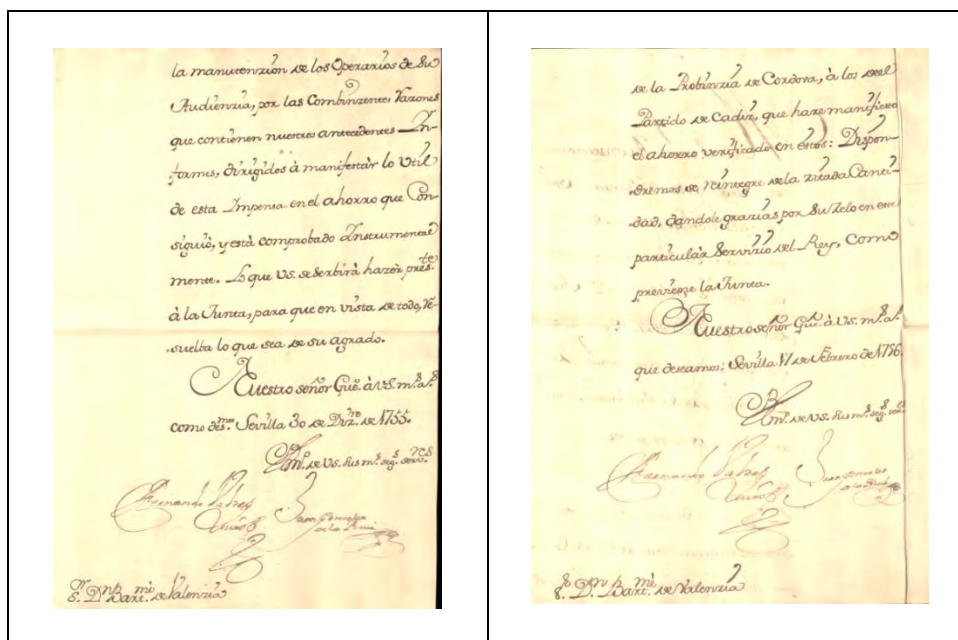 la manutenzion de los Operarios de Su
Audienzia, por las Combinzentes Razones
que contienen nuestros antezedentes In-
formes, dirigidos à manifestàr lo Util
de esta Impensa en el ahorro que Con-
siguiò, y està comprobado Instrumental
mente. Lo que VS. se serbirà hazèr pres.te
à la Junta, para que en vista de todo, Re-
suelba lo que sea de su agrado.
Nuestro señor Gue. à VS. m.s a.s
como des.mos Sevilla 30 de Diz.re de 1755.
BlM. de VS. sus m.s seg.s serv.res
Fernando
Juan Gonzalez
S.r D.n Bart.me de Valenzia
de la Probinzia de Cordova, à los del
Partido de Cadiz, que haze manifiesto
el ahorro verificado en estos: Dispon-
dremos se reintegre de la zitada Canti-
dad, dandole grazias por su zelo en este
particulàr Servizio del Rey, Como
previene la Junta.
Nuestro señor Gue. à VS. m.s a.s
que deseamos: Sevilla 17 de Febrero de 1756.
BlM. de VS. sus m.s seg.s
Fernando
Juan Gonzalez
S.r D.n Bart.me de Valenzia